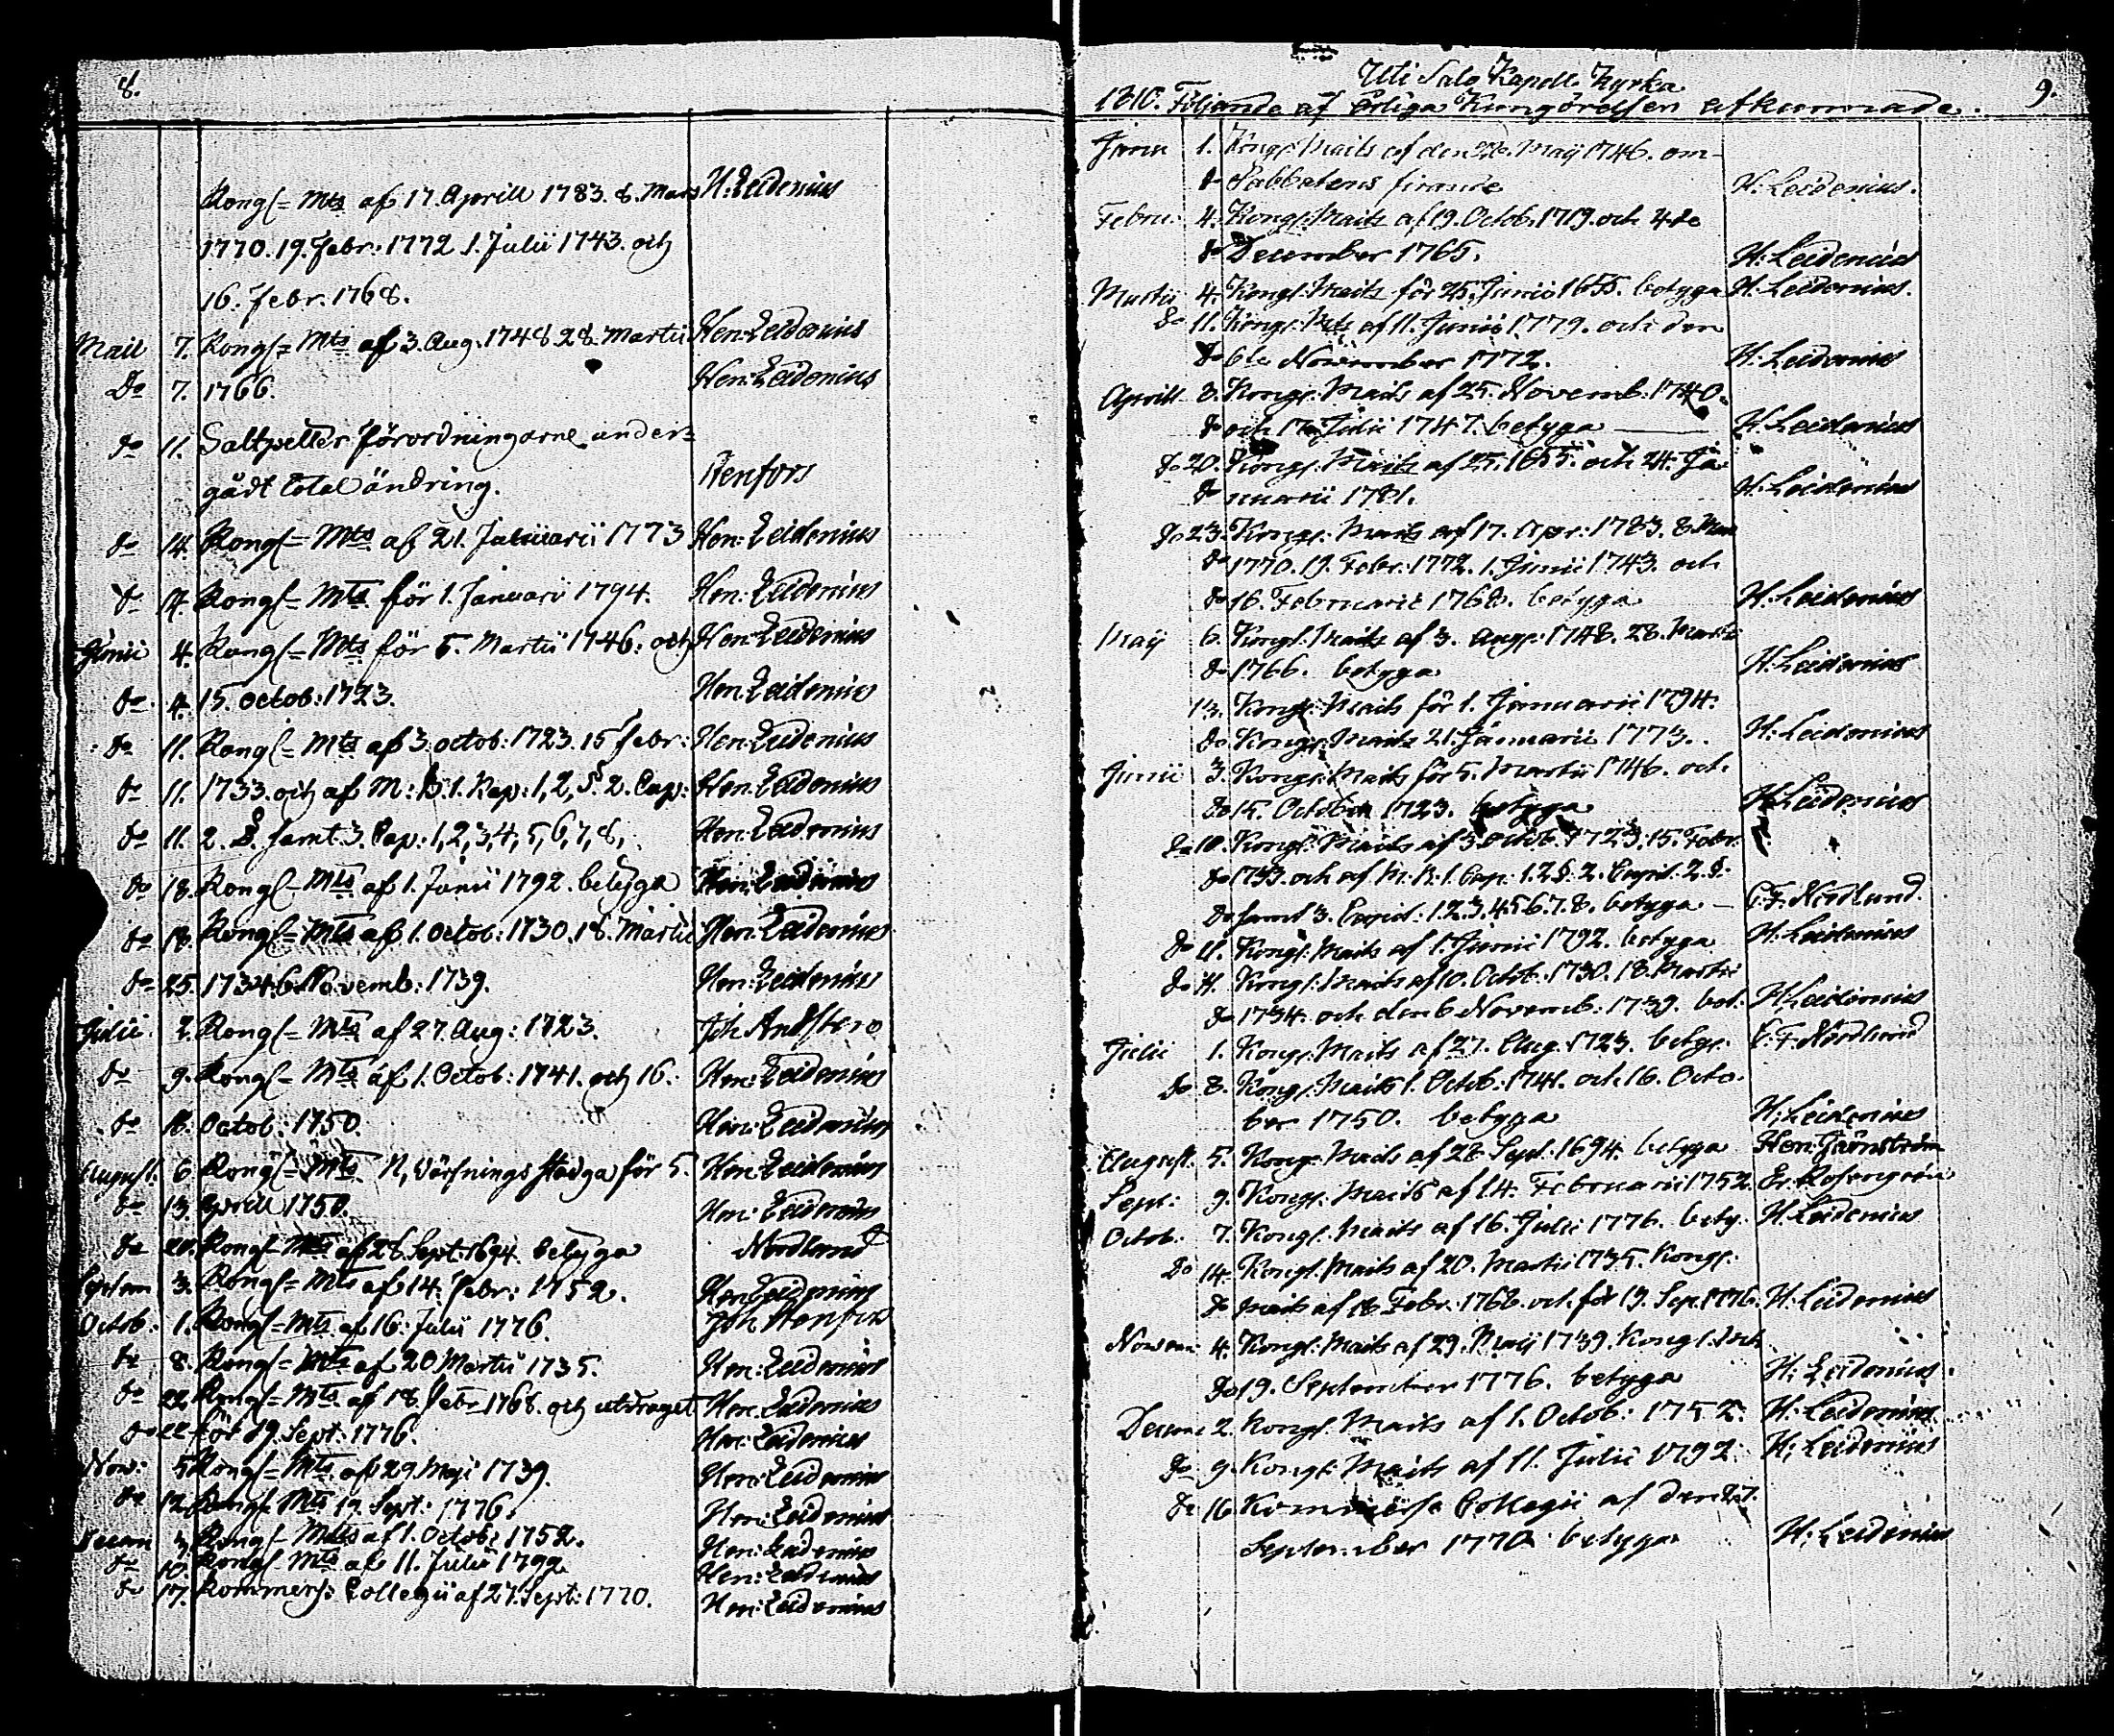 8.
Kongl= Mts af 17. Aprill 1783. 8. Mars H: Leidenius
1770. 19. Febr: 1772 1. Julii 1743. och
16. Febr: 1768.
Maii 7. Kongl= Mts af 3. Aug. 1748 28. Martii Hen: Leidenius
Do 7. 1766. Hen: Leidenius
do 11. Saltpetter förordningarne under-
gådt total ändring. Henfors
do 14. Kongl= Mts af 21. Januarii 1773 Hen: Leidenius
do 14. Kongl= Mts för 1. Januari 1794. Hen: Leidenius
Junii 4. Kongl= Mts för 5. Martii 1746. och Hen: Leidenius
do 4. 15. Octob: 1723. Hen: Leidenius
do 11. Kongl= Mts af 3. octob: 1723. 15 febr: Hen: Leidenius
do 11. 1733. och af M: B. 1. Kap: 1, 2, §. 2. Cap: Hen: Leidenius
do 11. 2. §. samt 3. Cap: 1, 2, 3, 4, 5, 6, 7, 8, Hen: Leidenius
do 18. Kongl= Mts af 1. Junii 1792. betyga Hen: Leidenius
do 18. Kongl= Mts af 1. Octob: 1730. 18. Martii Hen: Leidenius
do 25. 1734. 6. Novemb: 1739. Hen: Leidenius
Julii 2. Kongl= Mts af 27. Aug: 1723. Joh
do 9. Kongl= Mts af 1. Octob: 1741. och 16. Hen: Leidenius
do 16. Octob: 1750. Hen: Leidenius
August. 6 Kongl= Mts för 5. Hen: Leidenius
do 13. Aprill 1750. Hen: Leidenius
do 20. Kongl= Mts af 28 Sept: 1694. betyga Nordlund
Septem 3. Kongl= Mts af 14. Febr: 1752. Hen: Leidenius
Octob: 1. Kongl= Mts af 16. Julii 1776. Joh Henfors
do 8. Kongl= Mts af 20 Martii 1735. Hen: Leidenius
do 22. Kongl= Mts af 18. Febr 1768. och utdraget Hen: Leidenius
do 22 för 19. Sept: 1776. Hen: Leidenius
Nov: 5 Kongl= Mts af 29 Maji 1739. Hen: Leidenius
do 12. Kongl= Mts 19. Sept: 1776. Hen: Leidenius
Decem 3. Kongl= Mts af 1. Octob: 1752. Hen: Leidenius
do 10. Kongl= Mts af 11. Julii 1792 Hen: Leidenius
do 17. Kommers: Collegii af 27. Sept: 1770. Hen: Leidenius
Uti Salo Kapell Kyrka 9.
1810. Följande af årliga Kungörelsen afkunnade.
Janu 1. Kongl: Maits af den Maij 1746. om
do Sabbatens firande H: Leidenius.
Febru: 4. Kongl: Maits af 19. Octob. 1719. och 4 de
do December 1765. H: Leidenius
Martii 4. Kongl: Maits för 25. Junii 1655. betyga H: Leidenius.
do 11. Kongl: Mts af 11. Junii 1779. och den
do 6te November 1772. H: Leidenius
Aprill 8. Kongl: Maits af 25. Novemb: 1740.
do och 17 Julii 1747. betyga H: Leidenius
do 20. Kongl: Maits af 25. 1655. och 24. Ja-
do nuarii 1781. H: Leidenius
do 23. Kongl: Maits af 17. Apr: 1783. 8. Mar
do 1770. 19. Febr: 1772. 1. Junii 1743. och
do 16. Februarii 1768. betyga H: Leidenius
Maij 6. Kongl: Maits af 3. Aug: 1748. 28. Martii
do 1766. betyga H: Leidenius
13. Kongl: Maits för 1. Januarii 1794.
do Kongl: Maits 21. Januarii 1773. H: Leidenius
Junii 3. Kongl: Maits för 5. Martii 1746. och
do 15. October 1723. betyga H: Leidenius
do 10. Kongl: Maits af 3. Octob. 1723. 15. Febr.
do 1733. och af M. B. 1. Cap. 1. 2 §. 2. Capit. 2. §.
do samt 3. Capit: 1. 2. 3. 4. 5. 6. 7. 8. betyga C. F. Nordlund.
do 11. Kongl: Maits af 1. Junii 1792. betyga H: Leidenius
do 11. Kongl: Maits af 10. Octob. 1730. 18. Martii
do 1734. och den 6 Novemb. 1739. bet. H: Leidenius
Julii 1. Kongl: Maits af 27. Aug. 1723. betyg. C. F. Nordlund
do 8. Kongl: Maits 1. Octob. 1741. och 16. Octo-
ber 1750. betyga H: Leidenius
August. 5. Kongl: Maits af 28. Sept. 1694. betyga Hen: Jernström
Sept: 9. Kongl: Maits af 14. Februarii 1752. Er. Rosengrén
Octob. 7. Kongl: Maits af 16. Julii 1776. bety. H: Leidenius
do 14. Kongl: Maits af 20. Martii 1735. Kongl:
do Maits af 18. Febr. 1768. och för 19. Sep. 1776. H: Leidenius
Novem: 4. Kongl: Maits af 29. Maij 1739. Kongl:
do 19. September 1776. betyga H: Leidenius
Decem: 2. Kongl: Maits af 1. Octob: 1752. H: Leidenius
do 9. Kongl: Maits af 11. Julii 1792. H: Leidenius
do 16. Collegii af den 27.
September 1770 betyga H: Leidenius